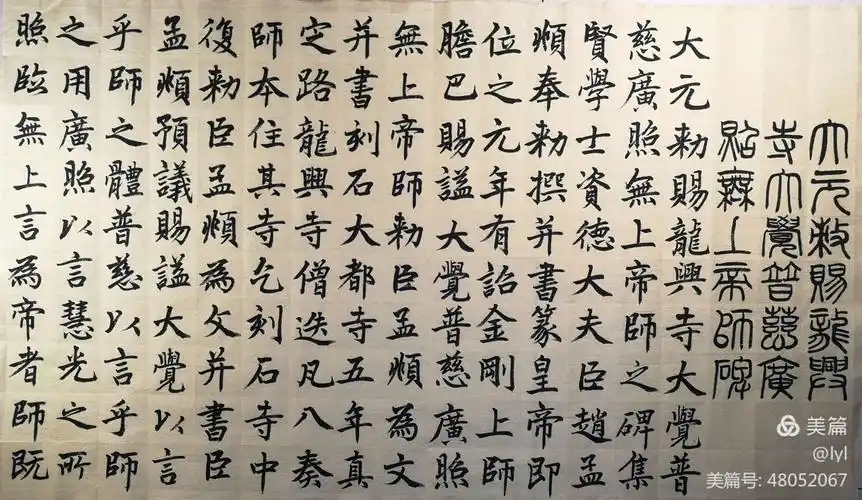 大元敕賜龍興
寺大覺普慈廣
照無上帝師碑
大元勅賜龍興寺大覺普
慈廣照無上帝師之碑集
賢學士資德大夫臣趙孟
頫奉勅撰并書篆皇帝即
位之元年有詔金剛上師
膽巴賜謚大覺普慈廣照
無上帝師勅臣孟頫為文
并書刻石大都寺五年真
定路龍興寺僧迭凡八奏
師本住其寺乞刻石寺中
復勅臣孟頫為文并書臣
孟頫預議賜謚大覺以言
乎師之體普慈以言乎師
之用廣照以言慧光之所
照臨無上言為帝者師既
美篇
@lyl
美篇号: 48052067